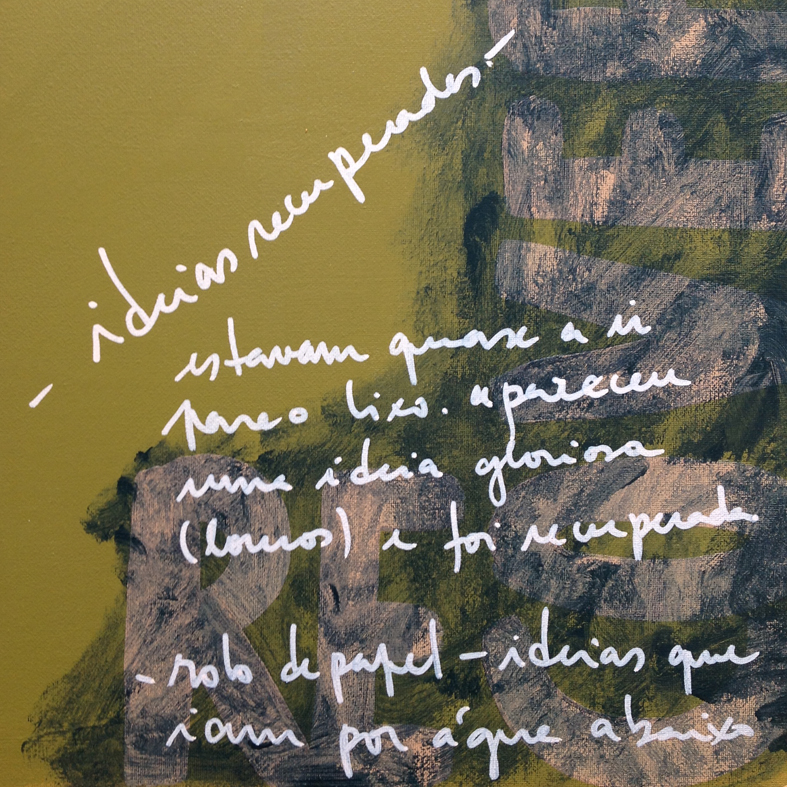 - ideias recuperadas -
estavam quase a ir
para o lixo. apareceu
uma ideia gloriosa
(loucos) e foi recuperada
- rolo de papel - ideias que
iam por água abaixo
RES